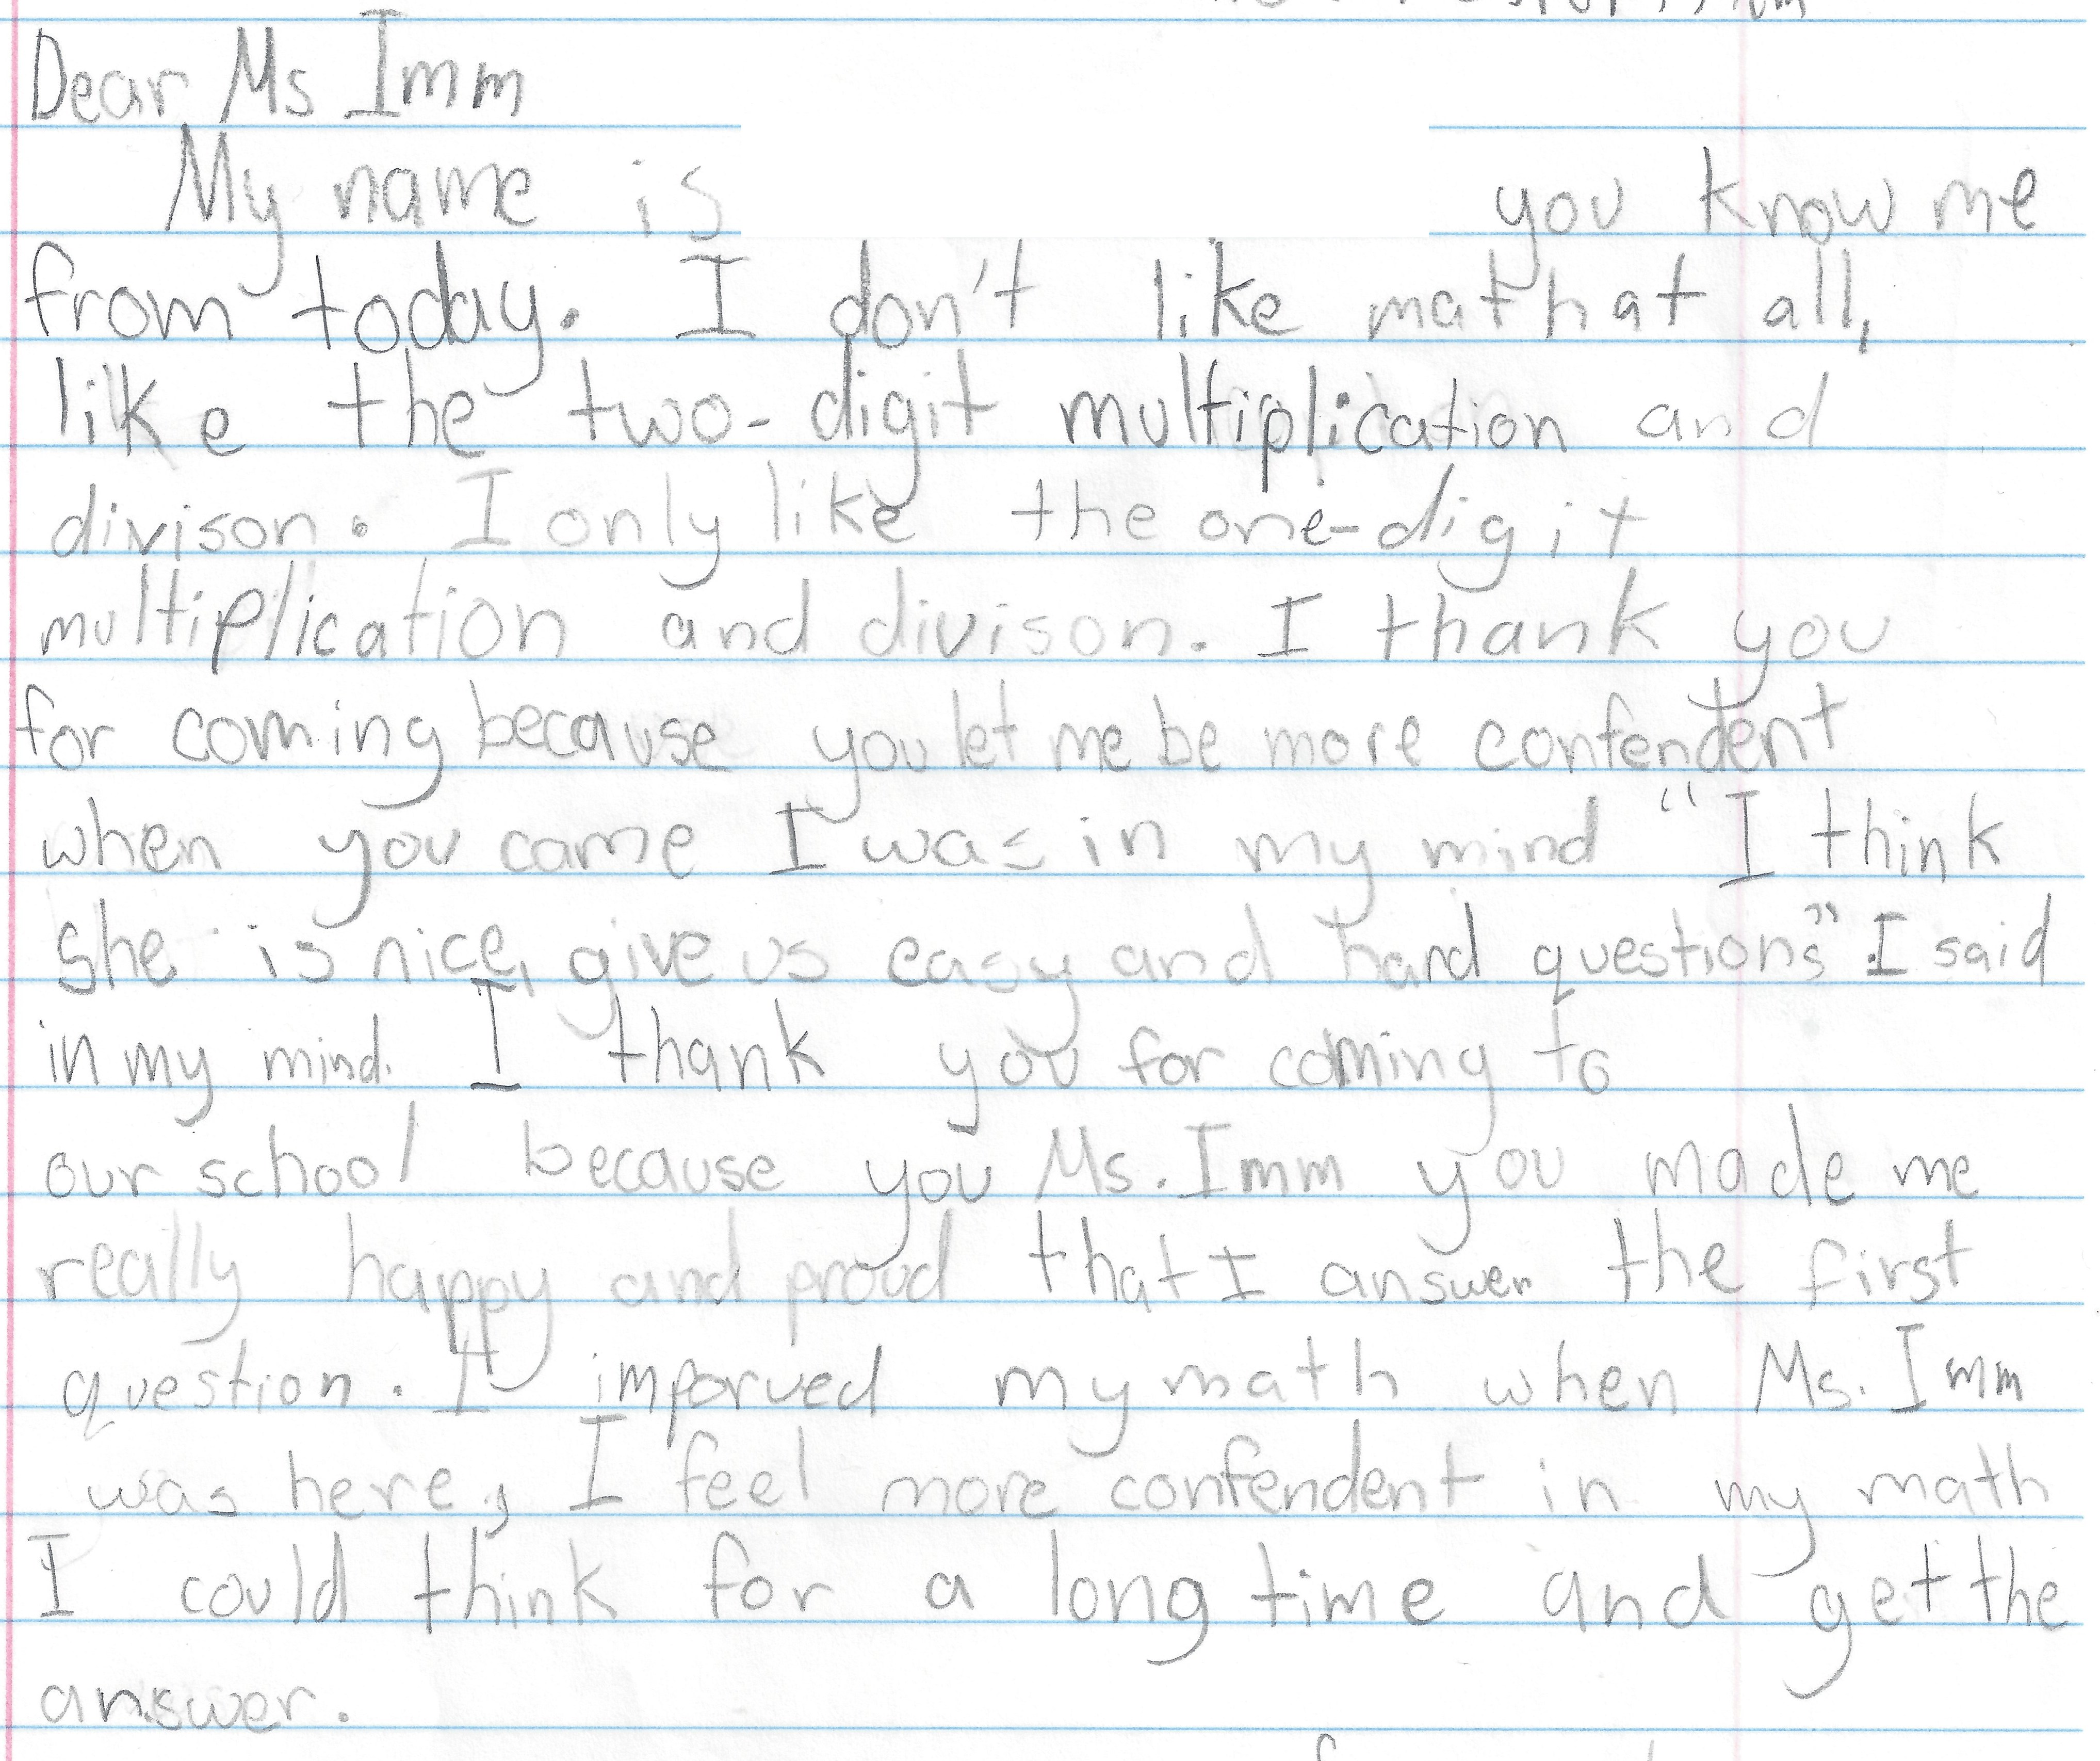 Dear Ms Imm
My name is you know me
from today. I don't like math at all,
like the two-digit multiplication and
divison. I only like the one-digit
multiplication and divison. I thank you
for coming because you let me be more confendent
when you came I was in my mind "I think
she is nice, give us easy and hard questions" I said
in my mind. I thank you for coming to
our school because you Ms. Imm you made me
really happy and proud that I answer the first
question. I imporved my math when Ms. Imm
was here, I feel more confendent in my math
I could think for a long time and get the
answer.